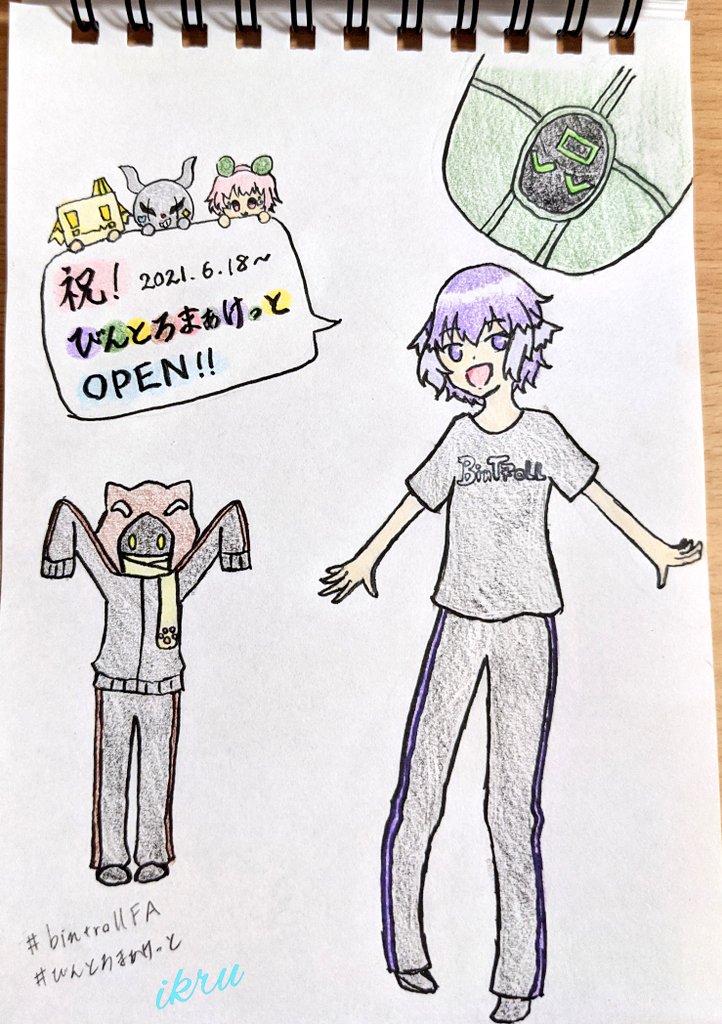 祝! 2021.6.18~
びんとろまぁけっと
OPEN!!
BinTRoLL
#bintrollFA
#びんとろまぁけっと
ikru